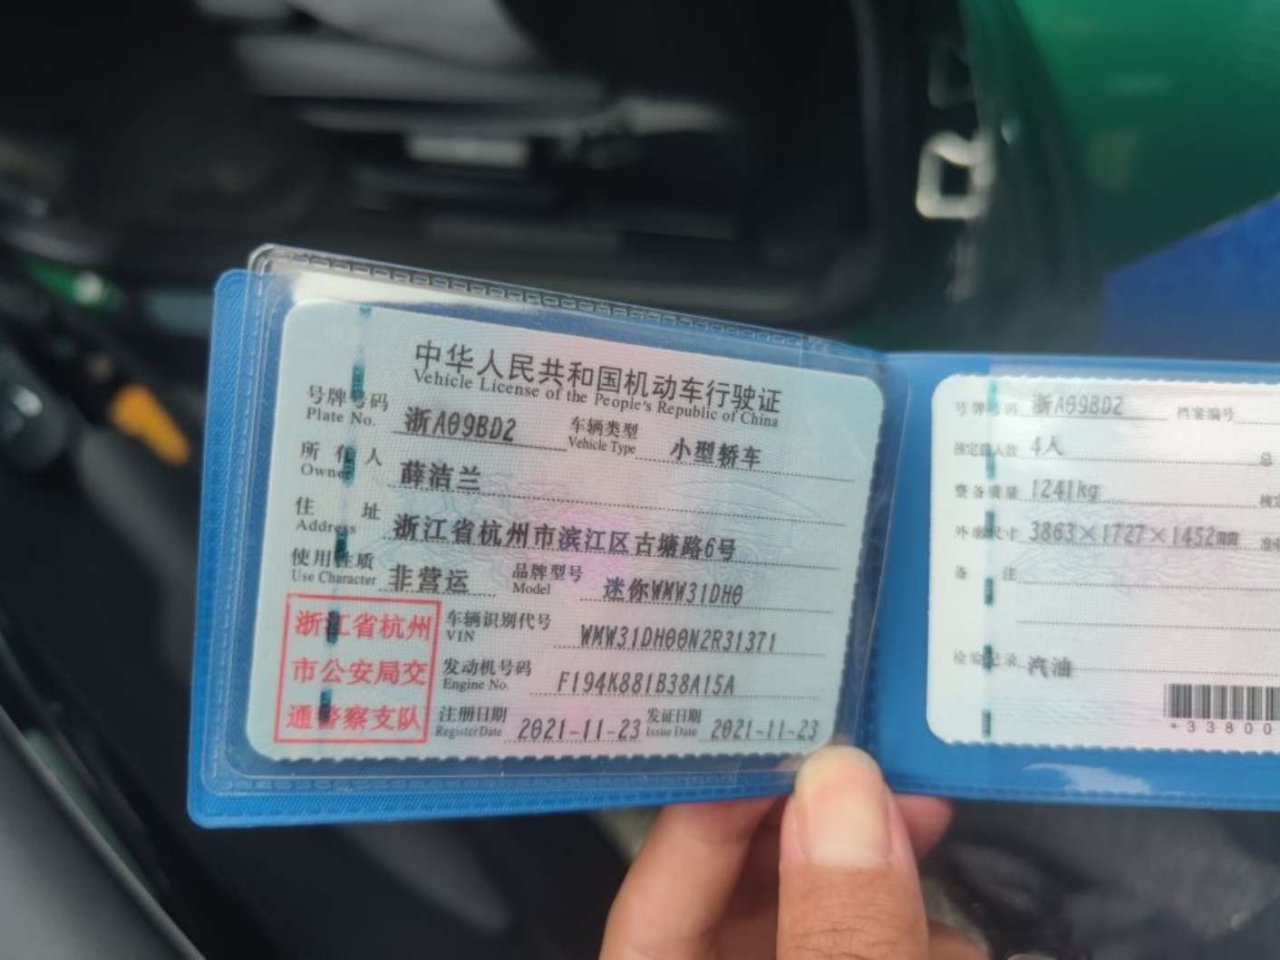 中华人民共和国机动车行驶证
Vehicle License of the People's Republic of China
号牌号码 浙A09BD2 车辆类型 小型轿车
Plate No. Vehicle Type
所有人 薛洁兰
Owner
住址 浙江省杭州市滨江区古塘路6号
Address
使用性质 非营运 品牌型号 迷你WMW31DH0
Use Character Model
浙江省杭州
市公安局交
通警察支队
车辆识别代号 WMW31DH00N2R31371
VIN
发动机号码 F194K881B38A15A
Engine No.
注册日期 2021-11-23 发证日期 2021-11-23
Register Date Issue Date
号牌号码 浙A09BD2 档案编号
核定载人数 4人 总
整备质量 1241kg 核
外廓尺寸 3863×1727×1452mm 准
备注
检验记录 汽油
*33800